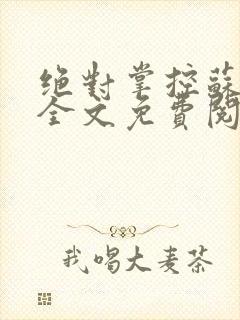 絕對掌控蘇
全文免費閱
我喝大麥茶